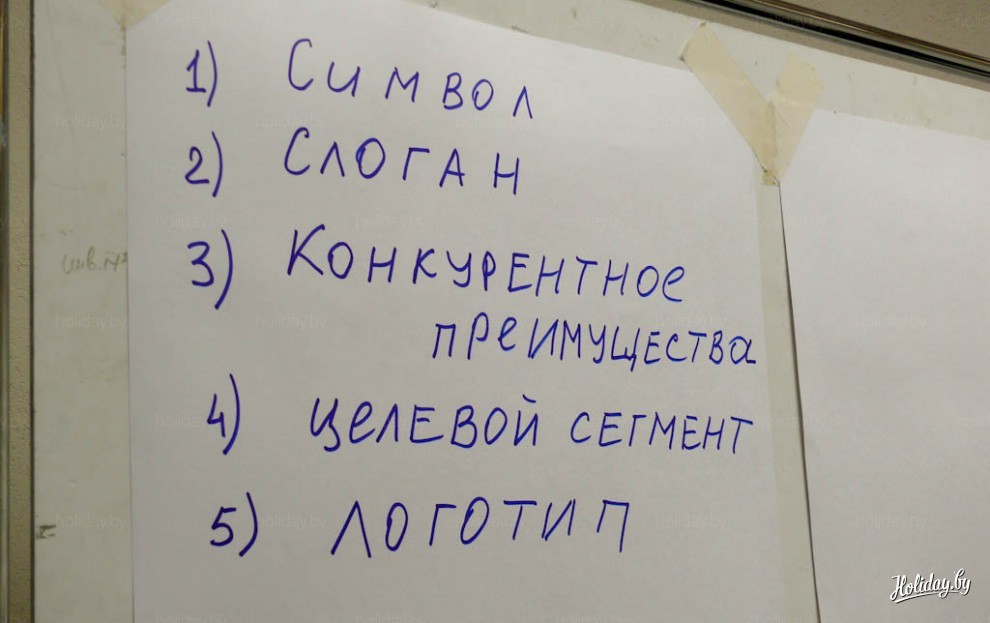 1) Символ
2) Слоган
3) Конкурентное
преимущества
4) целевой сегмент
5) логотип
Holiday.by